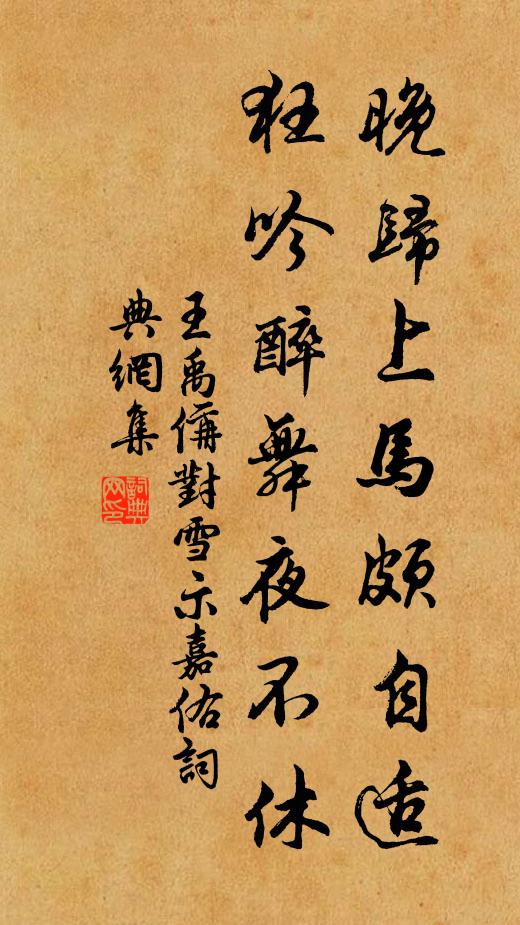 晚歸上馬頗自適
狂吟醉舞夜不休
王禹偁對雪示嘉佑詞
典網集
詞典網印